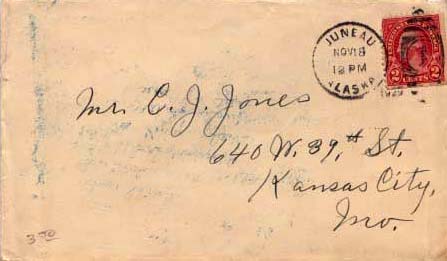 JUNEAU
NOV 18
12 PM
ALASKA
2 CENTS 2
Mr. C. J. Jones
640 W. 39th St.
Kansas City,
Mo.
3 50